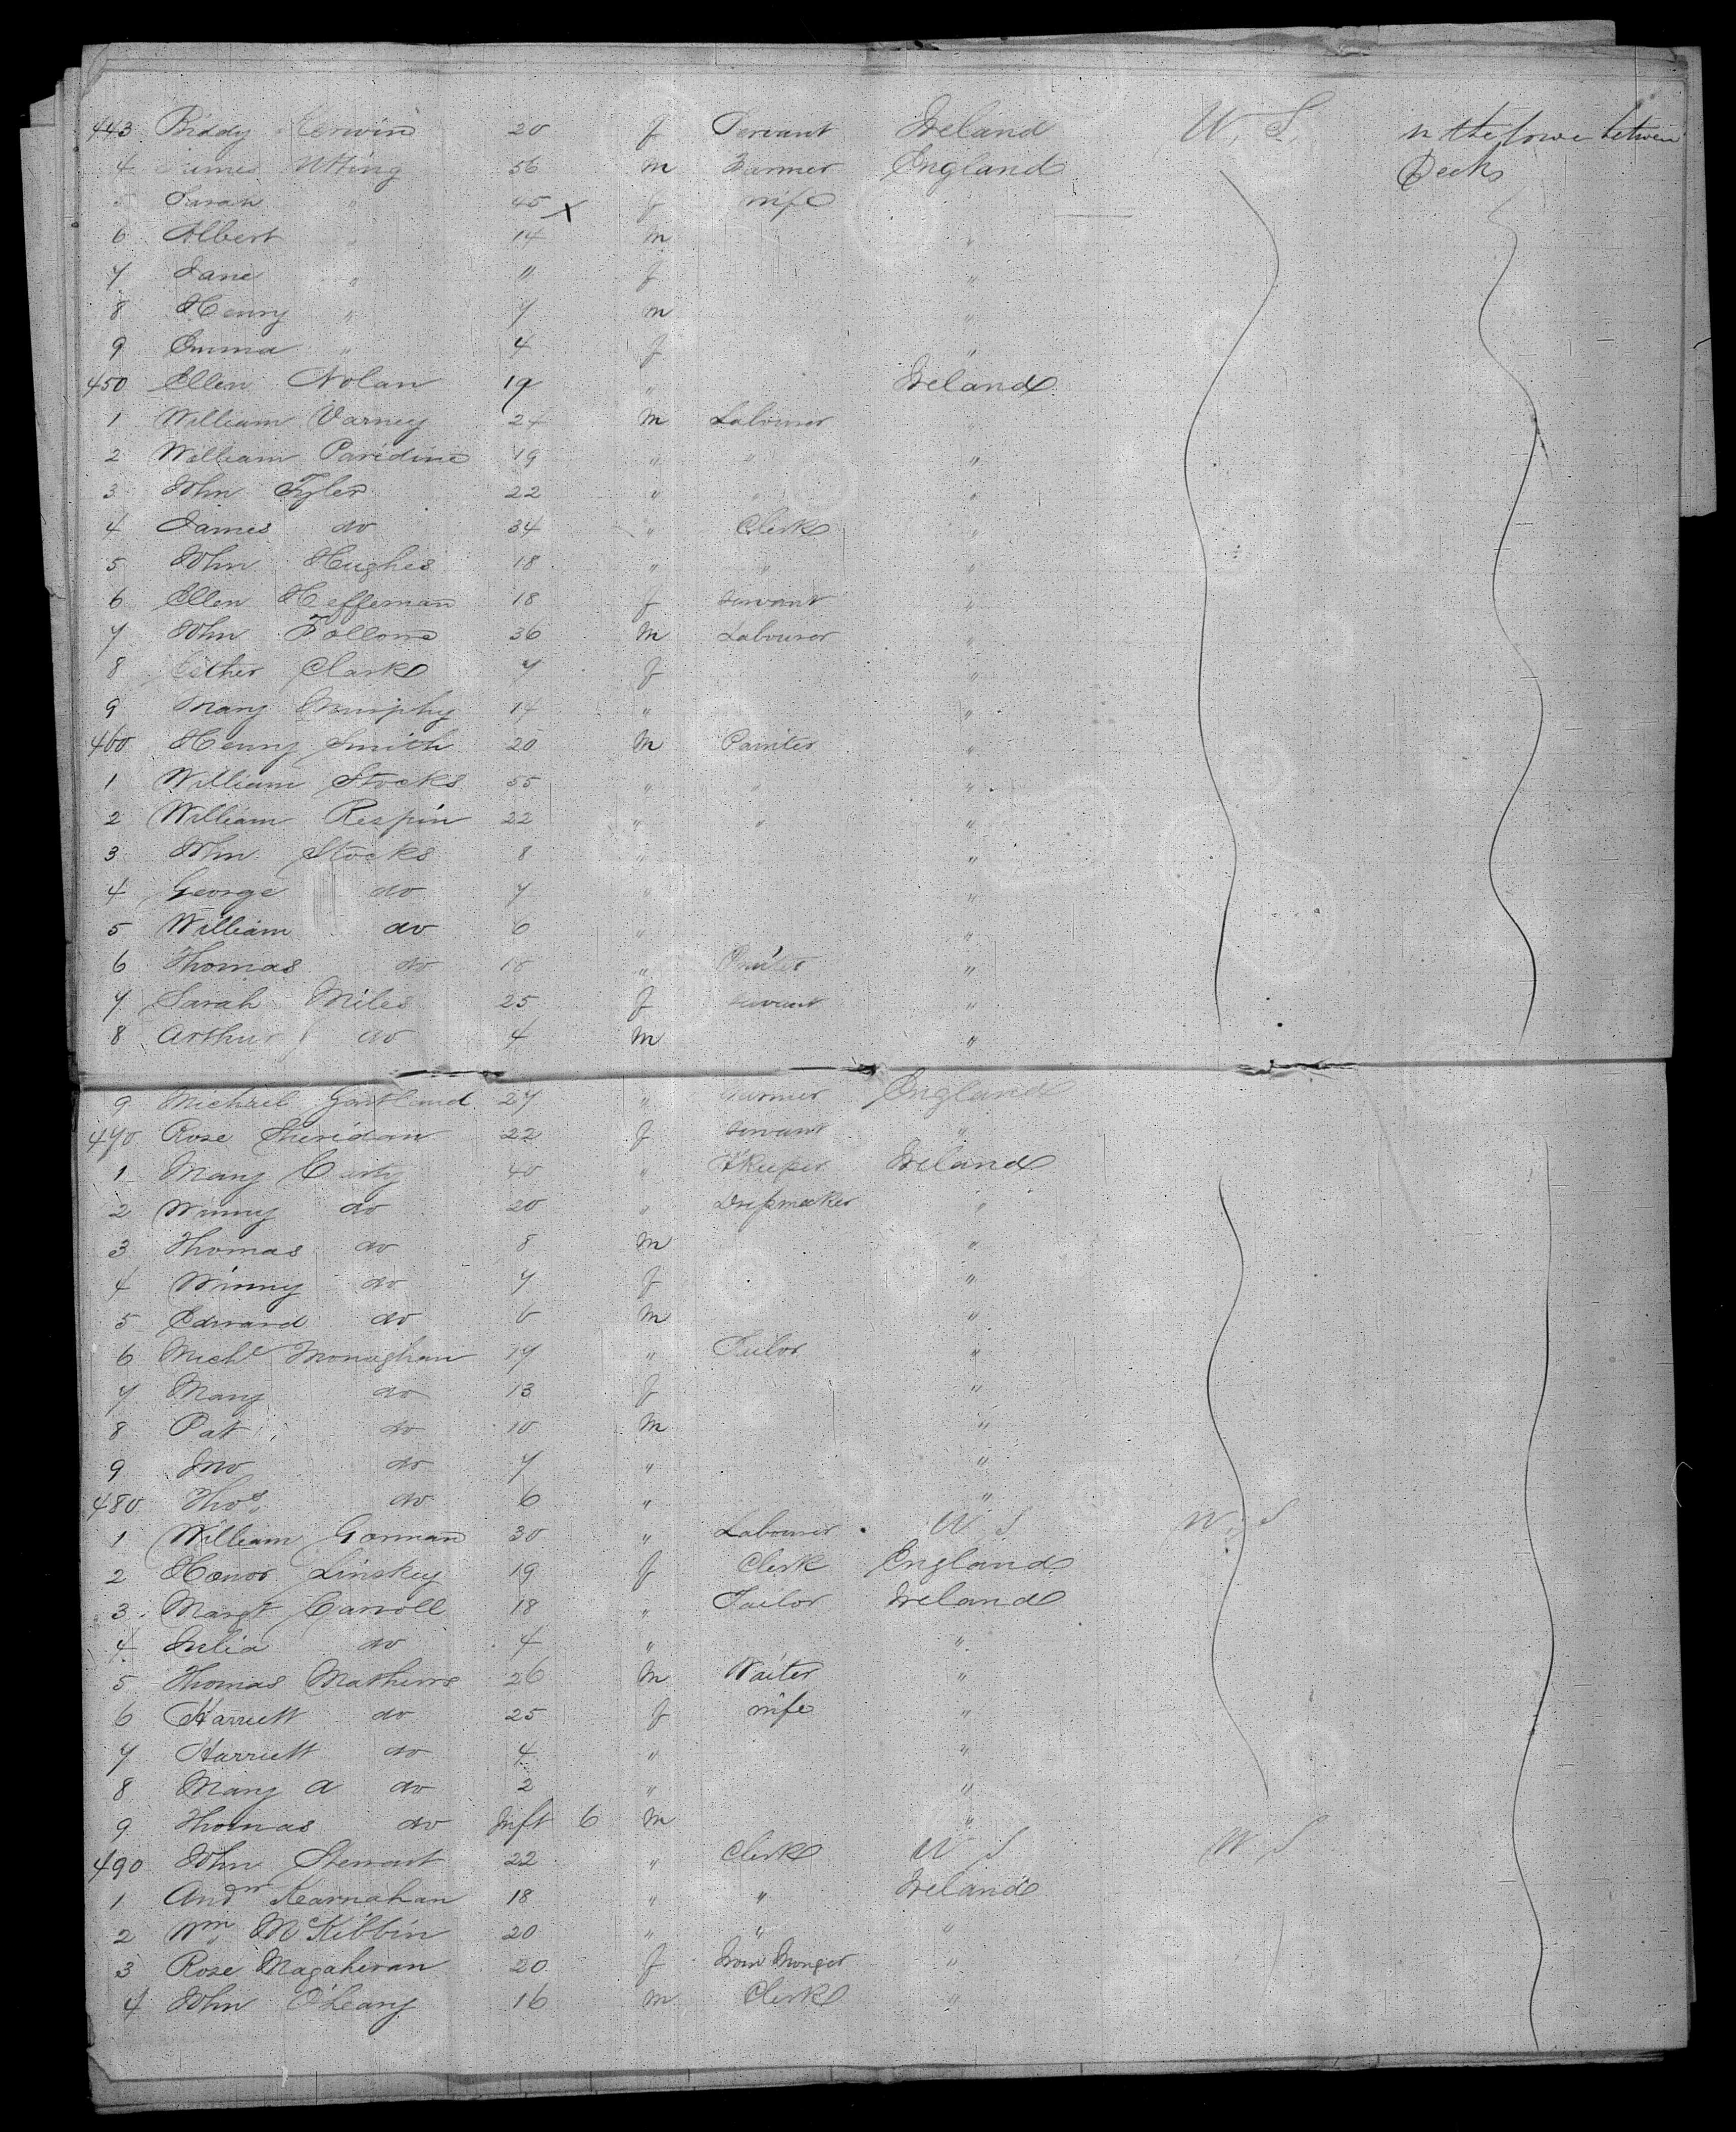 443 Biddy Kerwin 20 f Servant Ireland U. S. in the lower between
4 James Utting 56 m Farmer England Decks
5 Sarah " 45 x f wife
6 Albert " 14 m "
7 Jane " " f "
8 Henry " 7 m "
9 Emma " 4 f "
450 Ellen Nolan 19 " Ireland
1 William Varney 24 m Labourer "
2 William Paridine 19 " " "
3 John Tyler 22 " " "
4 James do 34 " Clerk "
5 John Hughes 18 " " "
6 Ellen Heffernan 18 f servant "
7 John Follond 36 m Labourer "
8 Esther Clarke 7 f "
9 Mary Murphy 14 " "
460 Henry Smith 20 m Painter "
1 William Stocks 55 " " "
2 William Respin 22 " " "
3 John Stocks 8 " "
4 George do 7 " "
5 William do 6 " "
6 Thomas do 18 " "
7 Sarah Miles 25 f servant "
8 Arthur do 4 m "
9 Michael Gartland 27 " Farmer England
470 Rose Sheridan 22 f servant "
1 Mary Carty 40 " H'Keeper Ireland
2 Winny do 20 " Dressmaker "
3 Thomas do 8 m "
4 Winny do 7 f "
5 Edward do 6 m "
6 Michl Monaghan 17 " Tailor "
7 Mary do 13 f "
8 Pat do 10 m "
9 Jno do 7 " "
480 Thos. do 6 " "
1 William Gorman 30 " Labourer U S U. S
2 Honor Linskey 19 f Clerk England
3 Margt Carroll 18 " Tailor Ireland
4 Julia do 4 " "
5 Thomas Mathews 26 m Waiter "
6 Harriett do 25 f wife "
7 Harriett do 4 " "
8 Mary A do 2 " "
9 Thomas do Inft 6 m "
490 John Stewart 22 " Clerk U S U. S
1 Andw Kearnahan 18 " " Ireland
2 Wm McKibbin 20 " " "
3 Rose Magaheran 20 f Iron Monger "
4 John O'Leary 16 m Clerk "